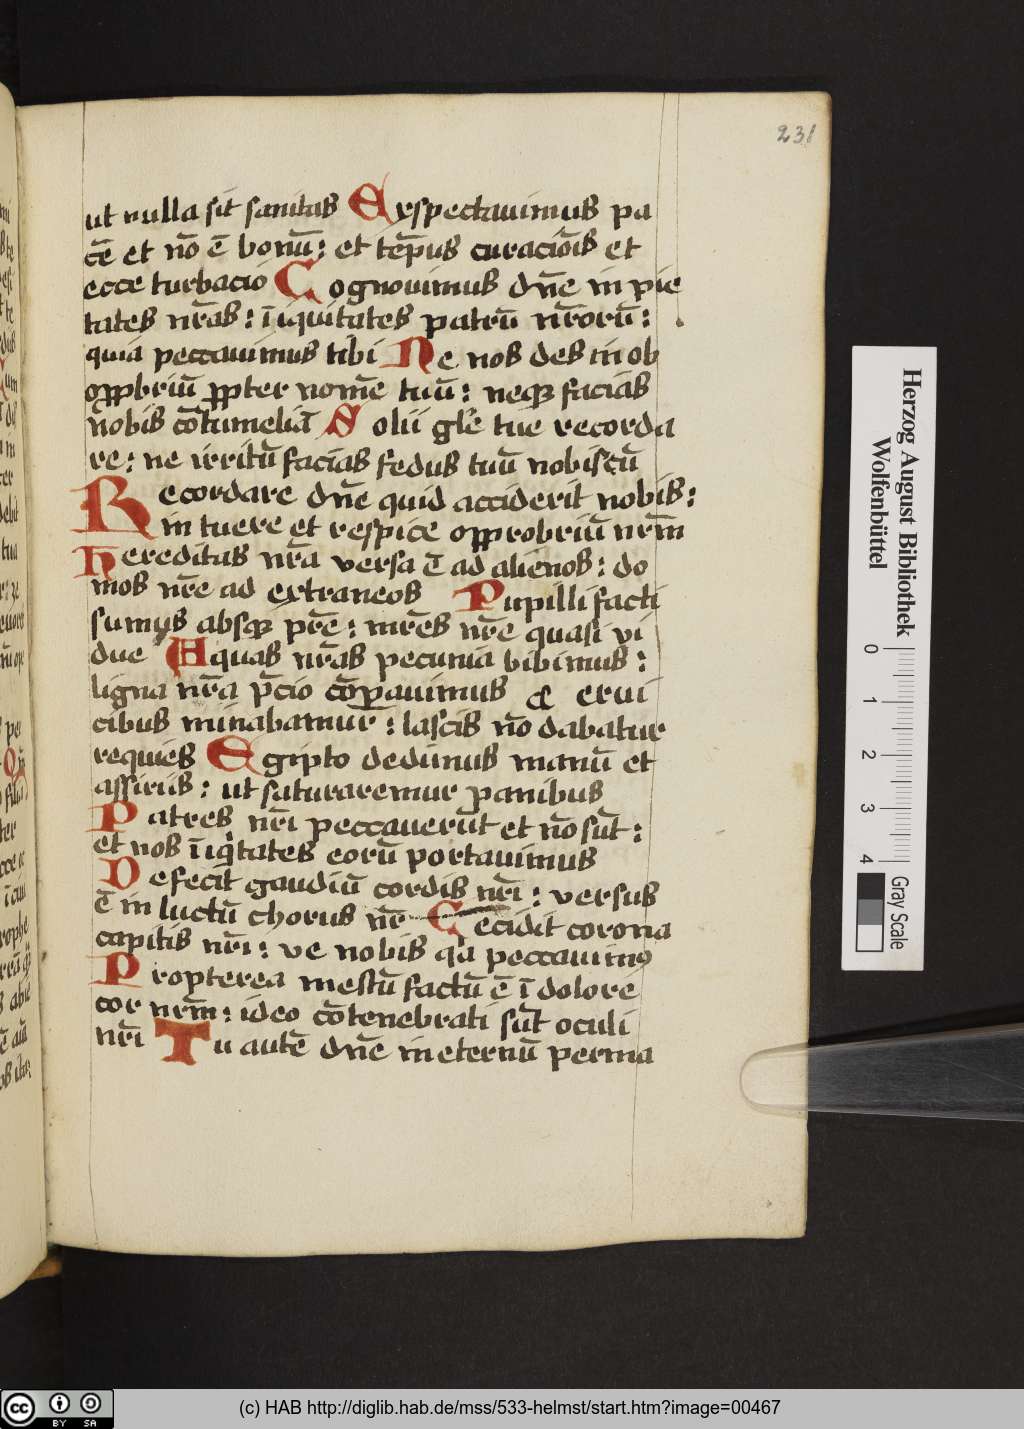 231
ut nulla sit sanitas Exspectauimus pa
cē et nō ē bonū: et tēpus curaciōis et
ecce turbacio Cognouimus dn̄e in pie
tates nr̄as: īiquitates patrū nr̄orū:
quia peccauimus tibi Ne nos des in ob
ꝓpbriū ꝓpter nomē tuū: neqꝫ facias
nobis cōtumeliā Solii glē tue recorda
re: ne irritū facias fedus tuū nobiscū
Recordare dn̄e quid acciderit nobis:
in tuere et respice opprobriū nrm̄
Hereditas nr̄a versa ē ad alienos: do
mos nr̄e ad extraneos Pupilli facti
sumus absqꝫ pr̄e: mr̄es nr̄e quasi vi
due Aquas nr̄as pecunia bibimus:
ligna nr̄a p̄cio cōparauimus Cerui
cibus minabamur: lascis nō dabatur
requies Egipto dedimus manū et
assiriis: ut saturaremur panibus
Patres nr̄i peccauerūt et nō sūt:
et nos īiqͥtates eorū portauimus
Defecit gaudiū cordis nr̄i: versus
ē in luctū chorus nr̄ Cecidit corona
capitis nr̄i: ve nobis qā peccauimꝰ
Propterea mestū factū ē ī dolore
cor nrm̄: ideo cōtenebrati sūt oculi
nr̄i Tu autē dn̄e in eternū perma
Herzog August Bibliothek
Wolfenbüttel
0 1 2 3 4
Gray Scale
(c) HAB http://diglib.hab.de/mss/533-helmst/start.htm?image=00467
cc BY SA